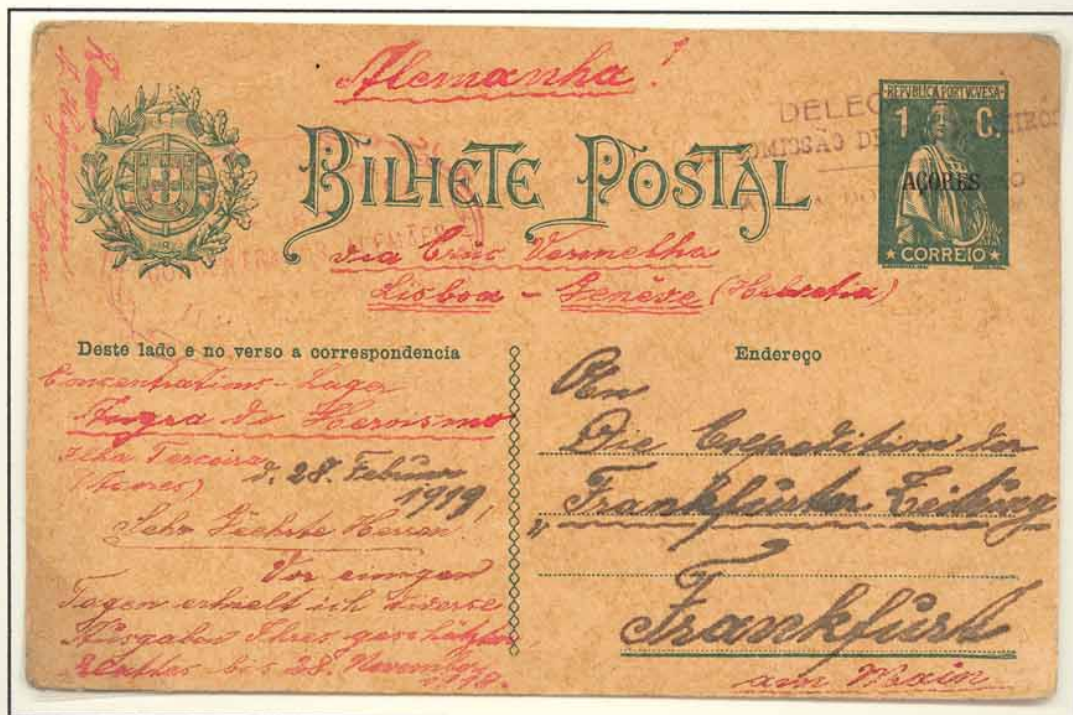 Alemanha!
REPUBLICA PORTUGUESA
1 C.
AÇORES
CORREIO
DELEG
MISSÃO DE
BILHETE POSTAL
via Cruz Vermelha
Lisboa - Genève (Helvetia)
Deste lado e no verso a correspondencia
Concentrations-Lager
Angra do Heroismo
Ilha Terceira
(Açores) d. 28. Februar
1919
Sehr Geehrte Herren
Vor einigen
Tagen erhielt ich diverse
Ausgaben Ihres geschätzten
Blattes bis 28. November
1918.
Endereço
An
Die Expedition der
„Frankfurter Zeitung
Frankfurt
am Main